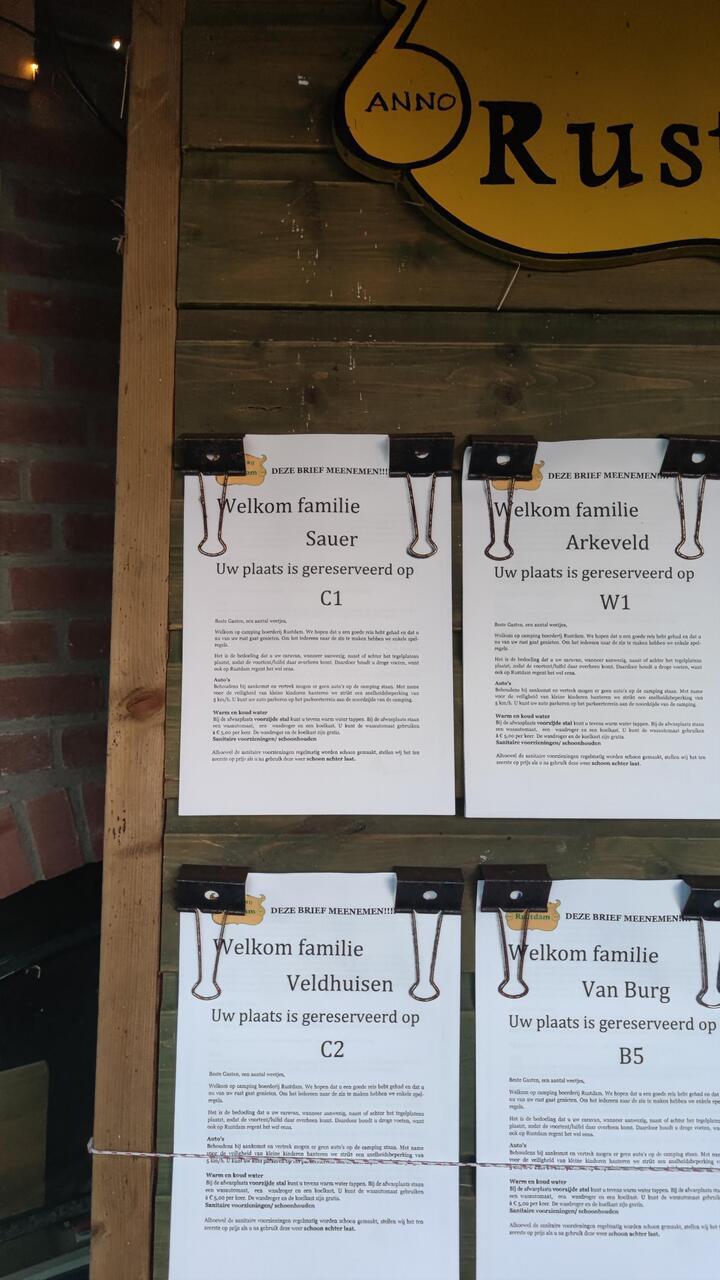 ANNO
Rust
DEZE BRIEF MEENEMEN!!!
Welkom familie
Sauer
Uw plaats is gereserveerd op
C1
Beste Gasten, een aantal weetjes,
Welkom op camping boerderij Rustdam. We hopen dat u een goede reis hebt gehad en dat u
nu van uw rust gaat genieten. Om het iedereen naar de zin te maken hebben we enkele spel-
regels.
Het is de bedoeling dat u uw caravan, wanneer aanwezig, naast of achter het tegelplateau
plaatst, zodat de voortent/luifel daar overheen komt. Daardoor houdt u droge voeten, want
ook op Rustdam regent het wel eens.
Auto's
Behoudens bij aankomst en vertrek mogen er geen auto's op de camping staan. Met name
voor de veiligheid van kleine kinderen hanteren we strikt een snelheidsbeperking van
5 km/h. U kunt uw auto parkeren op het parkeerterrein aan de noordzijde van de camping.
Warm en koud water
Bij de afwasplaats voorzijde stal kunt u tevens warm water tappen. Bij de afwasplaats staan
een wasautomaat, een wasdroger en een koelkast. U kunt de wasautomaat gebruiken
à € 5,00 per keer. De wasdroger en de koelkast zijn gratis.
Sanitaire voorzieningen/ schoonhouden
Alhoewel de sanitaire voorzieningen regelmatig worden schoon gemaakt, stellen wij het ten
zeerste op prijs als u na gebruik deze weer schoon achter laat.
DEZE BRIEF MEENEMEN!!!
Welkom familie
Arkeveld
Uw plaats is gereserveerd op
W1
Beste Gasten, een aantal weetjes,
Welkom op camping boerderij Rustdam. We hopen dat u een goede reis hebt gehad en dat u
nu van uw rust gaat genieten. Om het iedereen naar de zin te maken hebben we enkele spel-
regels.
Het is de bedoeling dat u uw caravan, wanneer aanwezig, naast of achter het tegelplateau
plaatst, zodat de voortent/luifel daar overheen komt. Daardoor houdt u droge voeten, want
ook op Rustdam regent het wel eens.
Auto's
Behoudens bij aankomst en vertrek mogen er geen auto's op de camping staan. Met name
voor de veiligheid van kleine kinderen hanteren we strikt een snelheidsbeperking van
5 km/h. U kunt uw auto parkeren op het parkeerterrein aan de noordzijde van de camping.
Warm en koud water
Bij de afwasplaats voorzijde stal kunt u tevens warm water tappen. Bij de afwasplaats staan
een wasautomaat, een wasdroger en een koelkast. U kunt de wasautomaat gebruiken
à € 5,00 per keer. De wasdroger en de koelkast zijn gratis.
Sanitaire voorzieningen/ schoonhouden
Alhoewel de sanitaire voorzieningen regelmatig worden schoon gemaakt, stellen wij het ten
zeerste op prijs als u na gebruik deze weer schoon achter laat.
DEZE BRIEF MEENEMEN!!!
Welkom familie
Veldhuisen
Uw plaats is gereserveerd op
C2
Beste Gasten, een aantal weetjes,
Welkom op camping boerderij Rustdam. We hopen dat u een goede reis hebt gehad en dat u
nu van uw rust gaat genieten. Om het iedereen naar de zin te maken hebben we enkele spel-
regels.
Het is de bedoeling dat u uw caravan, wanneer aanwezig, naast of achter het tegelplateau
plaatst, zodat de voortent/luifel daar overheen komt. Daardoor houdt u droge voeten, want
ook op Rustdam regent het wel eens.
Auto's
Behoudens bij aankomst en vertrek mogen er geen auto's op de camping staan. Met name
voor de veiligheid van kleine kinderen hanteren we strikt een snelheidsbeperking van
Warm en koud water
Bij de afwasplaats voorzijde stal kunt u tevens warm water tappen. Bij de afwasplaats staan
een wasautomaat, een wasdroger en een koelkast. U kunt de wasautomaat gebruiken
à € 5,00 per keer. De wasdroger en de koelkast zijn gratis.
Sanitaire voorzieningen/ schoonhouden
Alhoewel de sanitaire voorzieningen regelmatig worden schoon gemaakt, stellen wij het ten
zeerste op prijs als u na gebruik deze weer schoon achter laat.
Rustdam
DEZE BRIEF MEENEMEN!!!
Welkom familie
Van Burg
Uw plaats is gereserveerd op
B5
Beste Gasten, een aantal weetjes,
Welkom op camping boerderij Rustdam. We hopen dat u een goede reis hebt gehad en dat
nu van uw rust gaat genieten. Om het iedereen naar de zin te maken hebben we enkele spe
regels.
Het is de bedoeling dat u uw caravan, wanneer aanwezig, naast of achter het tegelplat
plaatst, zodat de voortent/luifel daar overheen komt. Daardoor houdt u droge voeten, w
ook op Rustdam regent het wel eens.
Auto's
Behoudens bij aankomst en vertrek mogen er geen auto's op de camping staan. Met na
voor de veiligheid van kleine kinderen hanteren we strikt een snelheidsbeperking
Warm en koud water
Bij de afwasplaats voorzijde stal kunt u tevens warm water tappen. Bij de afwasplaats sta
een wasautomaat, een wasdroger en een koelkast. U kunt de wasautomaat gebru
à € 5,00 per keer. De wasdroger en de koelkast zijn gratis.
Sanitaire voorzieningen/ schoonhouden
Alhoewel de sanitaire voorzieningen regelmatig worden schoon gemaakt, stellen wij het
zeerste op prijs als u na gebruik deze weer schoon achter laat.